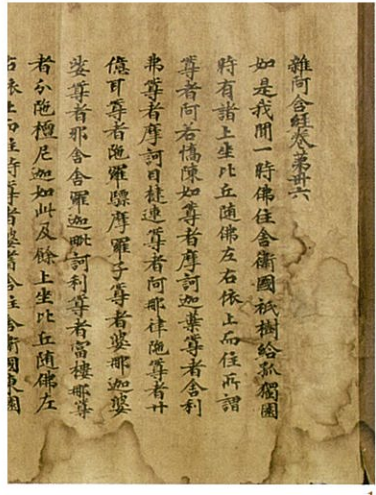 雜阿含經卷第卅六
如是我聞一時佛住舍衛國祇樹給孤獨園
時有諸上坐比丘随佛左右依上而住所謂
尊者阿若憍陳如尊者摩訶迦葉尊者舍利
弗尊者摩訶目揵連尊者阿那律陁尊者廿
億耳尊者陁羅驃摩羅子尊者婆那迦婆
娑尊者那舍舍羅迦毗訶利尊者富樓那尊
者分陁檀尼迦如此及餘上坐比丘随佛左
右依止而住時尊者婆耆舍住舍衛國東園